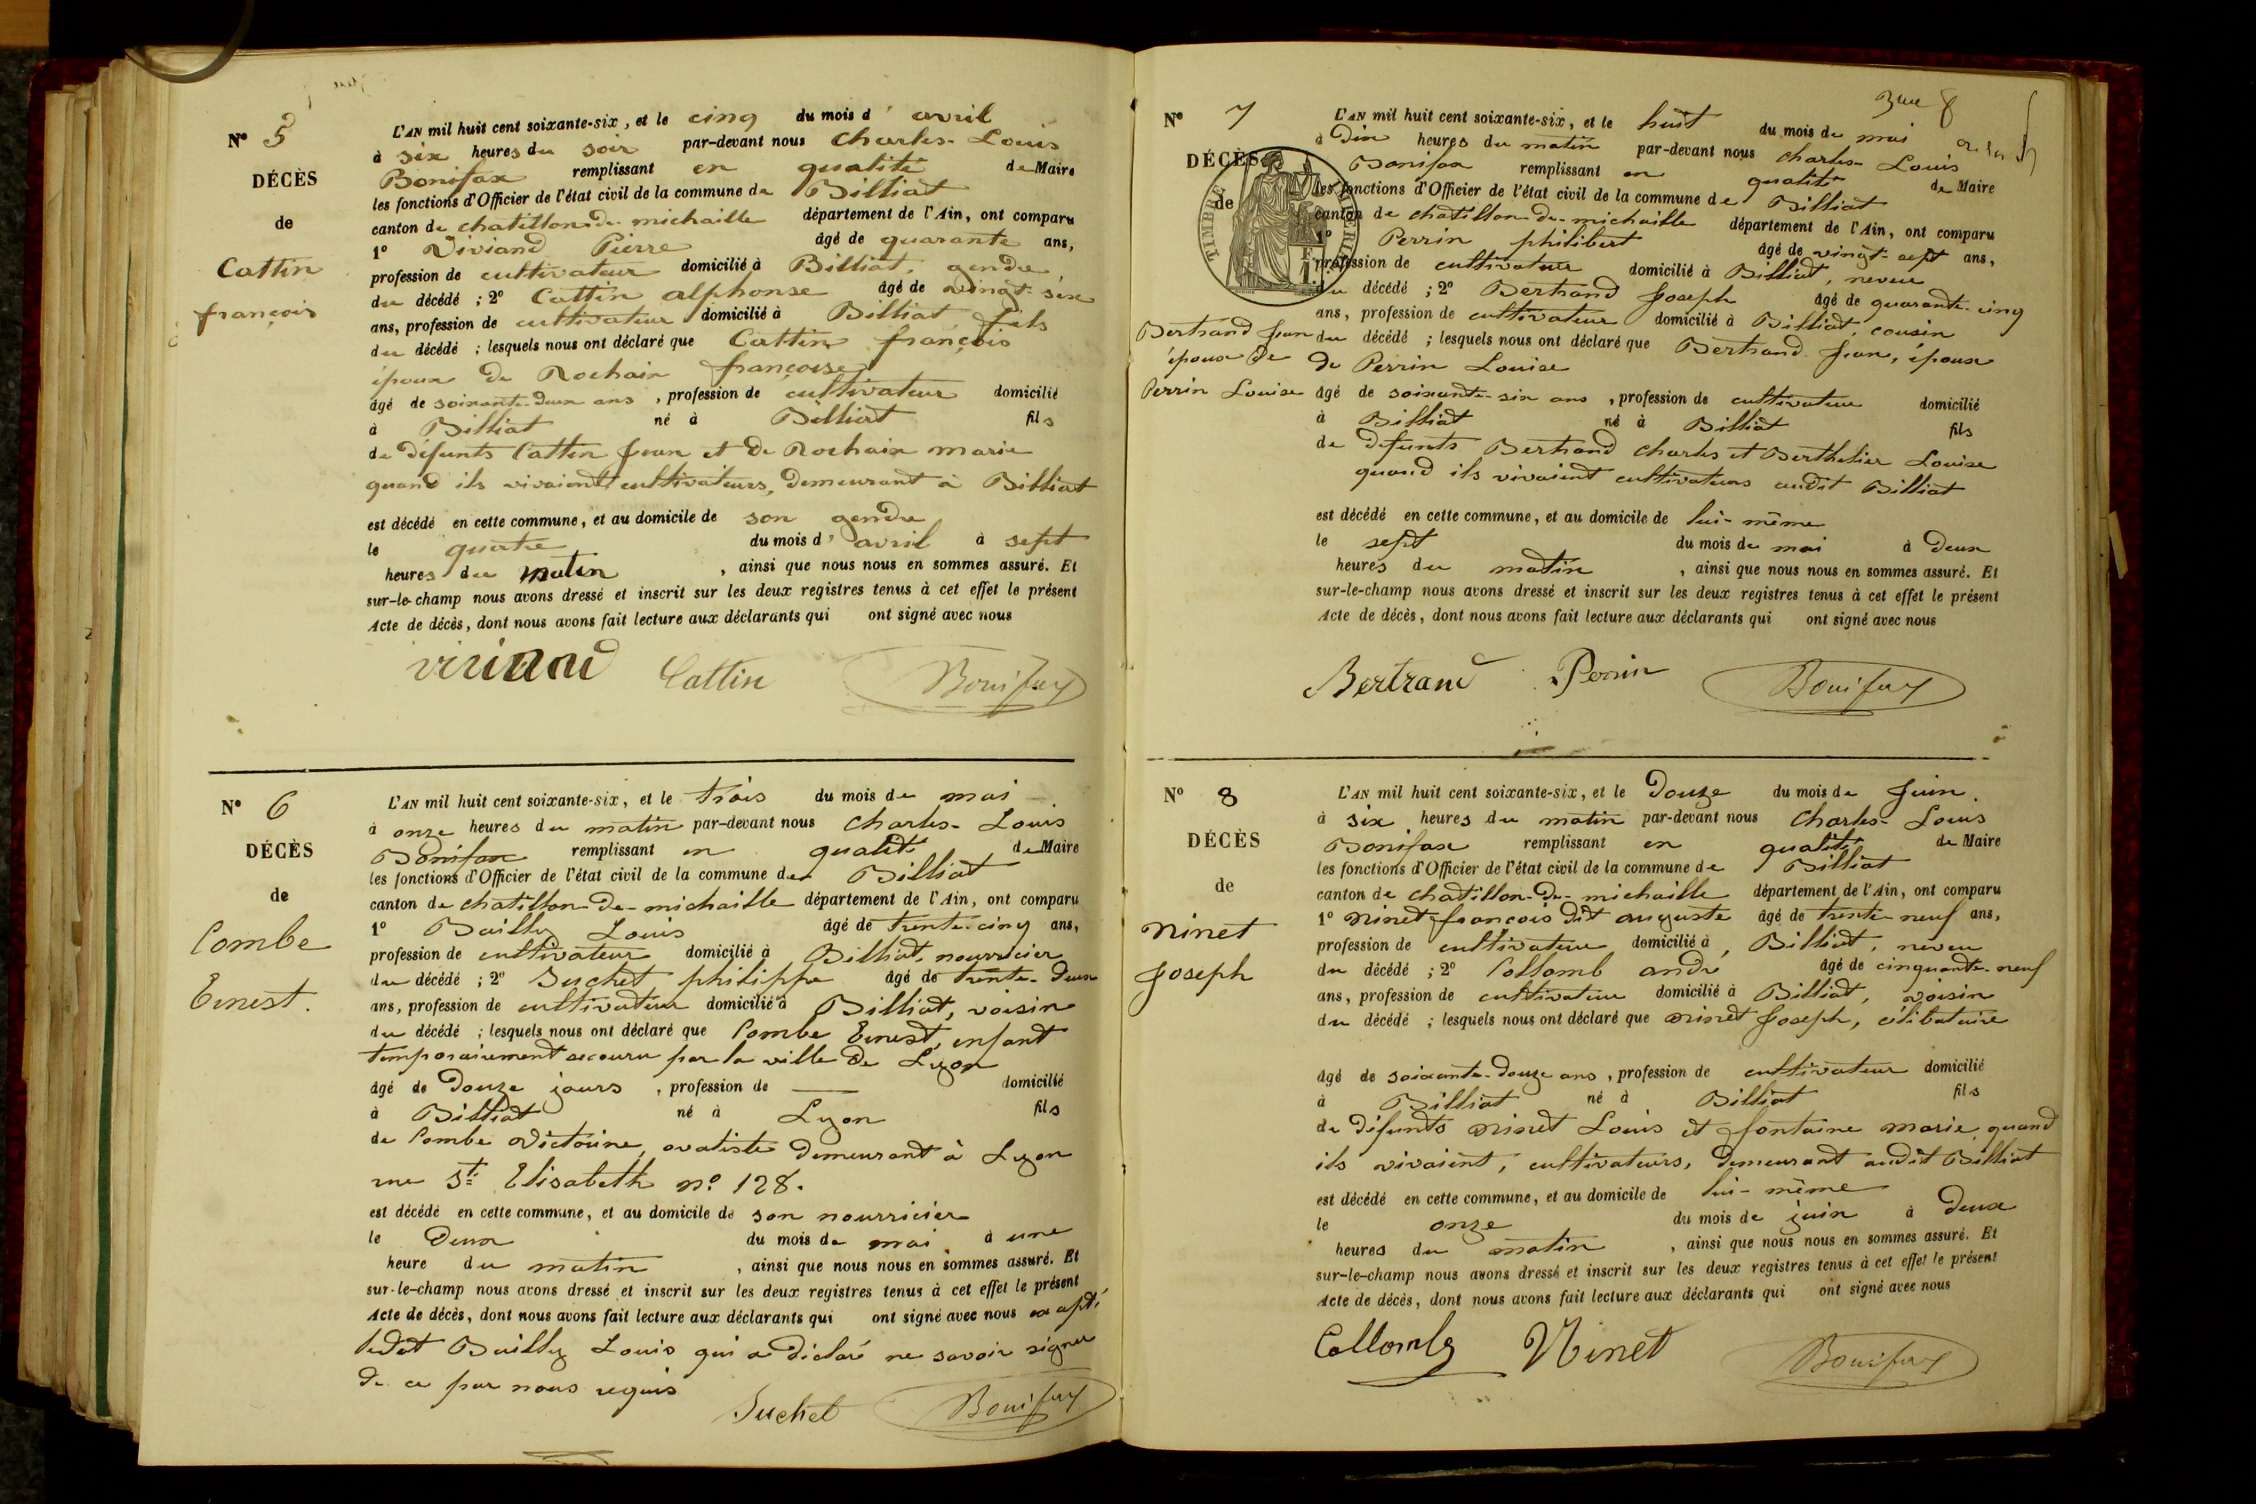 N° 5
DÉCÈS
de
Cattin
françois
L'AN mil huit cent soixante-six, et le cinq du mois d'avril
à six heures du soir par-devant nous Charles-Louis
Bonifax remplissant en qualité de Maire
les fonctions d'Officier de l'état civil de la commune de Billiat
canton de chatillon-de-michaille département de l'Ain, ont comparu
1° Viviand Pierre âgé de quarante ans,
profession de cultivateur domicilié à Billiat, gendre
du décédé ; 2° Cattin alphonse âgé de vingt-six
ans, profession de cultivateur domicilié à Billiat, fils
du décédé ; lesquels nous ont déclaré que Cattin françois
époux de Rochaix françoise
âgé de soixante-deux ans, profession de cultivateur domicilié
à Billiat né à Billiat fils
de défunts Cattin Jean et de Rochaix marie
quand ils vivaient cultivateurs, demeurant à Billiat
est décédé en cette commune, et au domicile de son gendre
le quatre du mois d'avril à sept
heures du matin, ainsi que nous nous en sommes assuré. Et
sur-le-champ nous avons dressé et inscrit sur les deux registres tenus à cet effet le présent
Acte de décès, dont nous avons fait lecture aux déclarants qui ont signé avec nous
viviand Cattin Bonifax
N° 6
DÉCÈS
de
Combe
Ernest.
L'AN mil huit cent soixante-six, et le trois du mois de mai
à onze heures du matin par-devant nous Charles-Louis
Bonifax remplissant en qualité de Maire
les fonctions d'Officier de l'état civil de la commune de Billiat
canton de chatillon-de-michaille département de l'Ain, ont comparu
1° Bailly Louis âgé de trente-cinq ans,
profession de cultivateur domicilié à Billiat, nourricier
du décédé ; 2° Suchet philippe âgé de trente-deux
ans, profession de cultivateur domicilié à Billiat, voisin
du décédé ; lesquels nous ont déclaré que Combe Ernest, enfant
temporairement secouru par la ville de Lyon
âgé de douze jours, profession de — domicilié
à Billiat né à Lyon fils
de Combe Victorine, ovaliste demeurant à Lyon
rue Ste Elisabeth n° 128.
est décédé en cette commune, et au domicile de son nourricier
le deux du mois de mai à une
heure du matin, ainsi que nous nous en sommes assuré. Et
sur-le-champ nous avons dressé et inscrit sur les deux registres tenus à cet effet le présent
Acte de décès, dont nous avons fait lecture aux déclarants qui ont signé avec nous
Bailly Louis qui a déclaré ne savoir signer
de ce par nous requis
Suchet Bonifax
N° 7
DÉCÈS
de
Bertrand Jean
époux de
Perrin Louise
TIMBRE
L'AN mil huit cent soixante-six, et le huit du mois de mai
à Dix heures du matin par-devant nous Charles-Louis
Bonifax remplissant en qualité de Maire
les fonctions d'Officier de l'état civil de la commune de Billiat
canton de chatillon-de-michaille département de l'Ain, ont comparu
1° Perrin philibert âgé de vingt-sept ans,
profession de cultivateur domicilié à Billiat, neveu
du décédé ; 2° Bertrand Joseph âgé de quarante-cinq
ans, profession de cultivateur domicilié à Billiat, cousin
du décédé ; lesquels nous ont déclaré que Bertrand Jean, époux
de Perrin Louise
âgé de soixante-six ans, profession de cultivateur domicilié
à Billiat né à Billiat fils
de défunts Bertrand Charles et Berthelier Louise
quand ils vivaient cultivateurs audit Billiat
est décédé en cette commune, et au domicile de lui-même
le sept du mois de mai à deux
heures du matin, ainsi que nous nous en sommes assuré. Et
sur-le-champ nous avons dressé et inscrit sur les deux registres tenus à cet effet le présent
Acte de décès, dont nous avons fait lecture aux déclarants qui ont signé avec nous
Bertrand Perrin Bonifax
N° 8
DÉCÈS
de
Ninet
Joseph
L'AN mil huit cent soixante-six, et le douze du mois de Juin.
à six heures du matin par-devant nous Charles-Louis
Bonifax remplissant en qualité de Maire
les fonctions d'Officier de l'état civil de la commune de Billiat
canton de chatillon-de-michaille département de l'Ain, ont comparu
1° Ninet françois dit auguste âgé de trente-neuf ans,
profession de cultivateur domicilié à Billiat, neveu
du décédé ; 2° Collomb andré âgé de cinquante-neuf
ans, profession de cultivateur domicilié à Billiat, voisin
du décédé ; lesquels nous ont déclaré que Ninet Joseph, célibataire
âgé de soixante-douze ans, profession de cultivateur domicilié
à Billiat né à Billiat fils
de défunts Ninet Louis et fontaine marie, quand
ils vivaient, cultivateurs, demeurant audit Billiat
est décédé en cette commune, et au domicile de lui-même
le onze du mois de juin à deux
heures du matin, ainsi que nous nous en sommes assuré. Et
sur-le-champ nous avons dressé et inscrit sur les deux registres tenus à cet effet le présent
Acte de décès, dont nous avons fait lecture aux déclarants qui ont signé avec nous
Collomb Ninet Bonifax